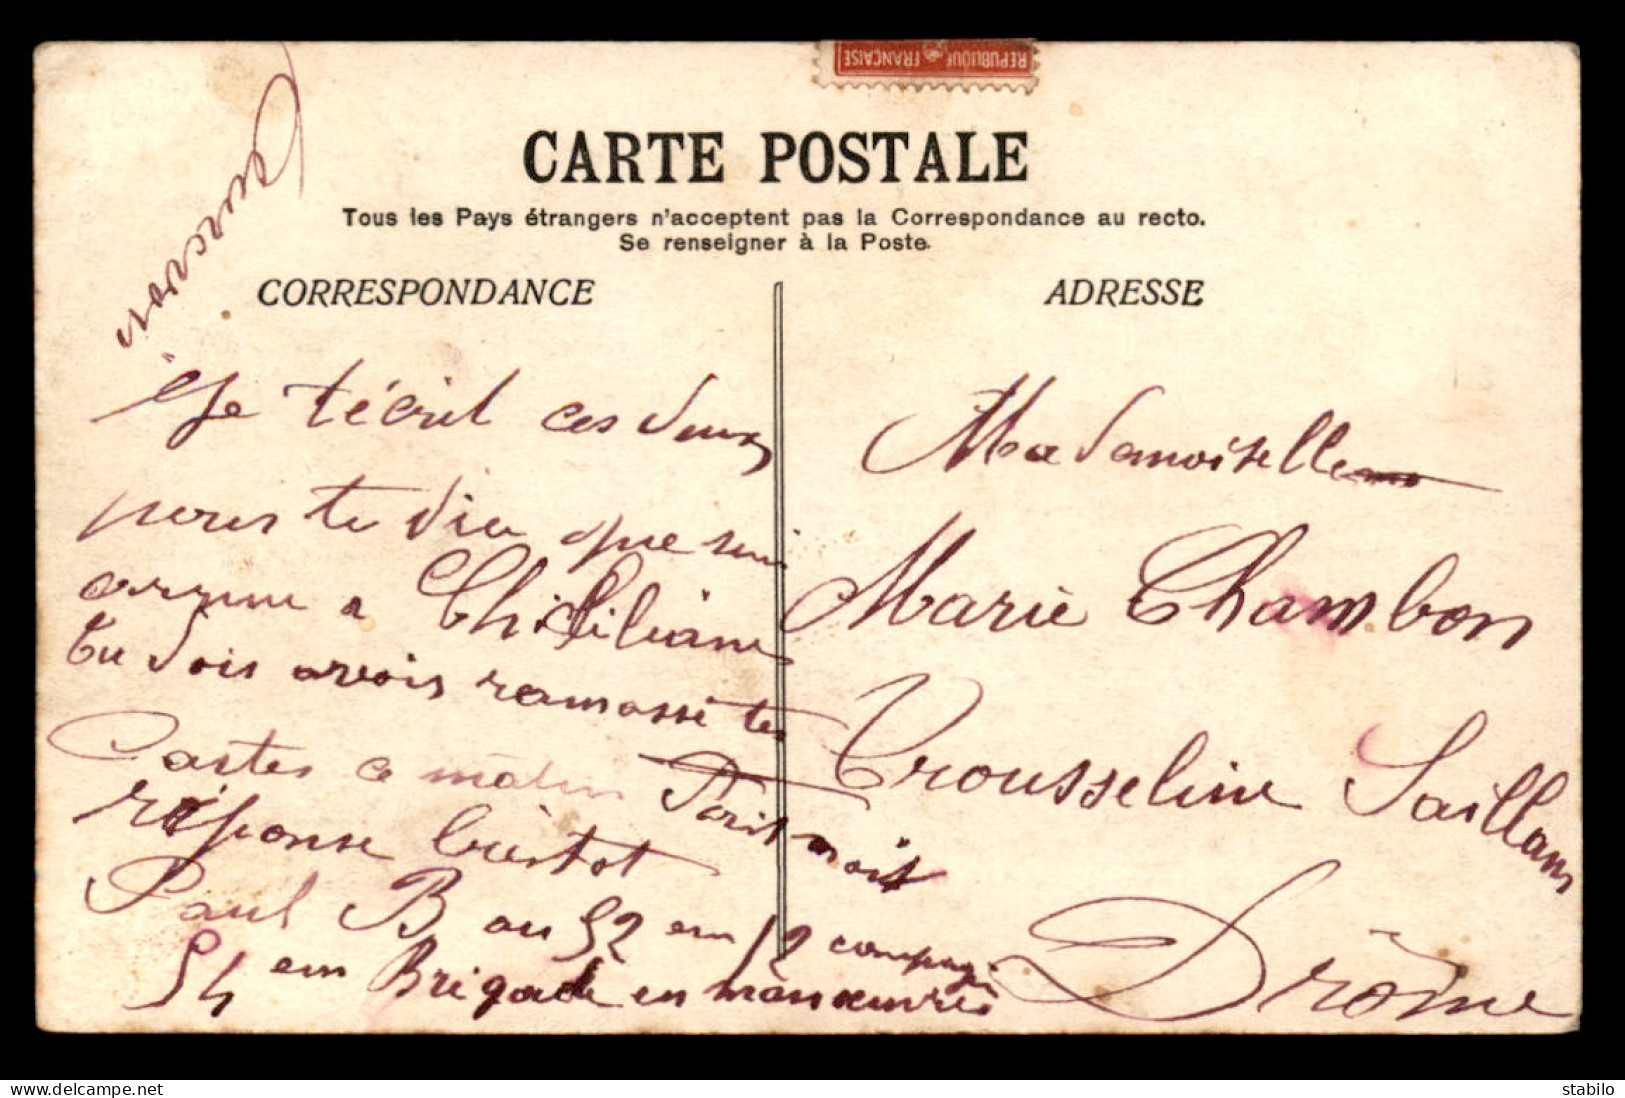 REPUBLIQUE FRANÇAISE
CARTE POSTALE
Tous les Pays étrangers n'acceptent pas la Correspondance au recto.
Se renseigner à la Poste.
CORRESPONDANCE
Je t'écrit ces deux
pour te dire que sui
arrive a Chichiliane
tu dois avois ramassé tes
Cartes ce matin
réponse bientot
Paul B au 52 em 12 compagi
54 em Brigade en manœuvres
ADRESSE
Mademoiselle
Marie Chambon
Trousseline Saillans
Drôme
delcampe.net
stabilo